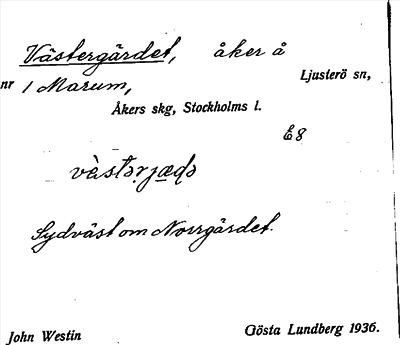 Västergärdet, åker å
Ljusterö sn,
nr 1 Marum,
Åkers skg, Stockholms l.
E8
Sydväst om Norrgärdet.
John Westin Gösta Lundberg 1936.